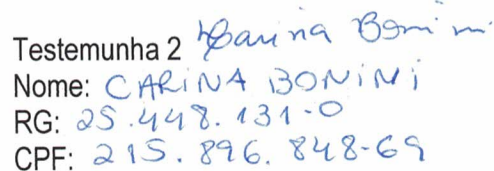 Testemunha 2 Carina Bonini
Nome: CARINA BONINI
RG: 25.448.131-0
CPF: 215.896.848-69